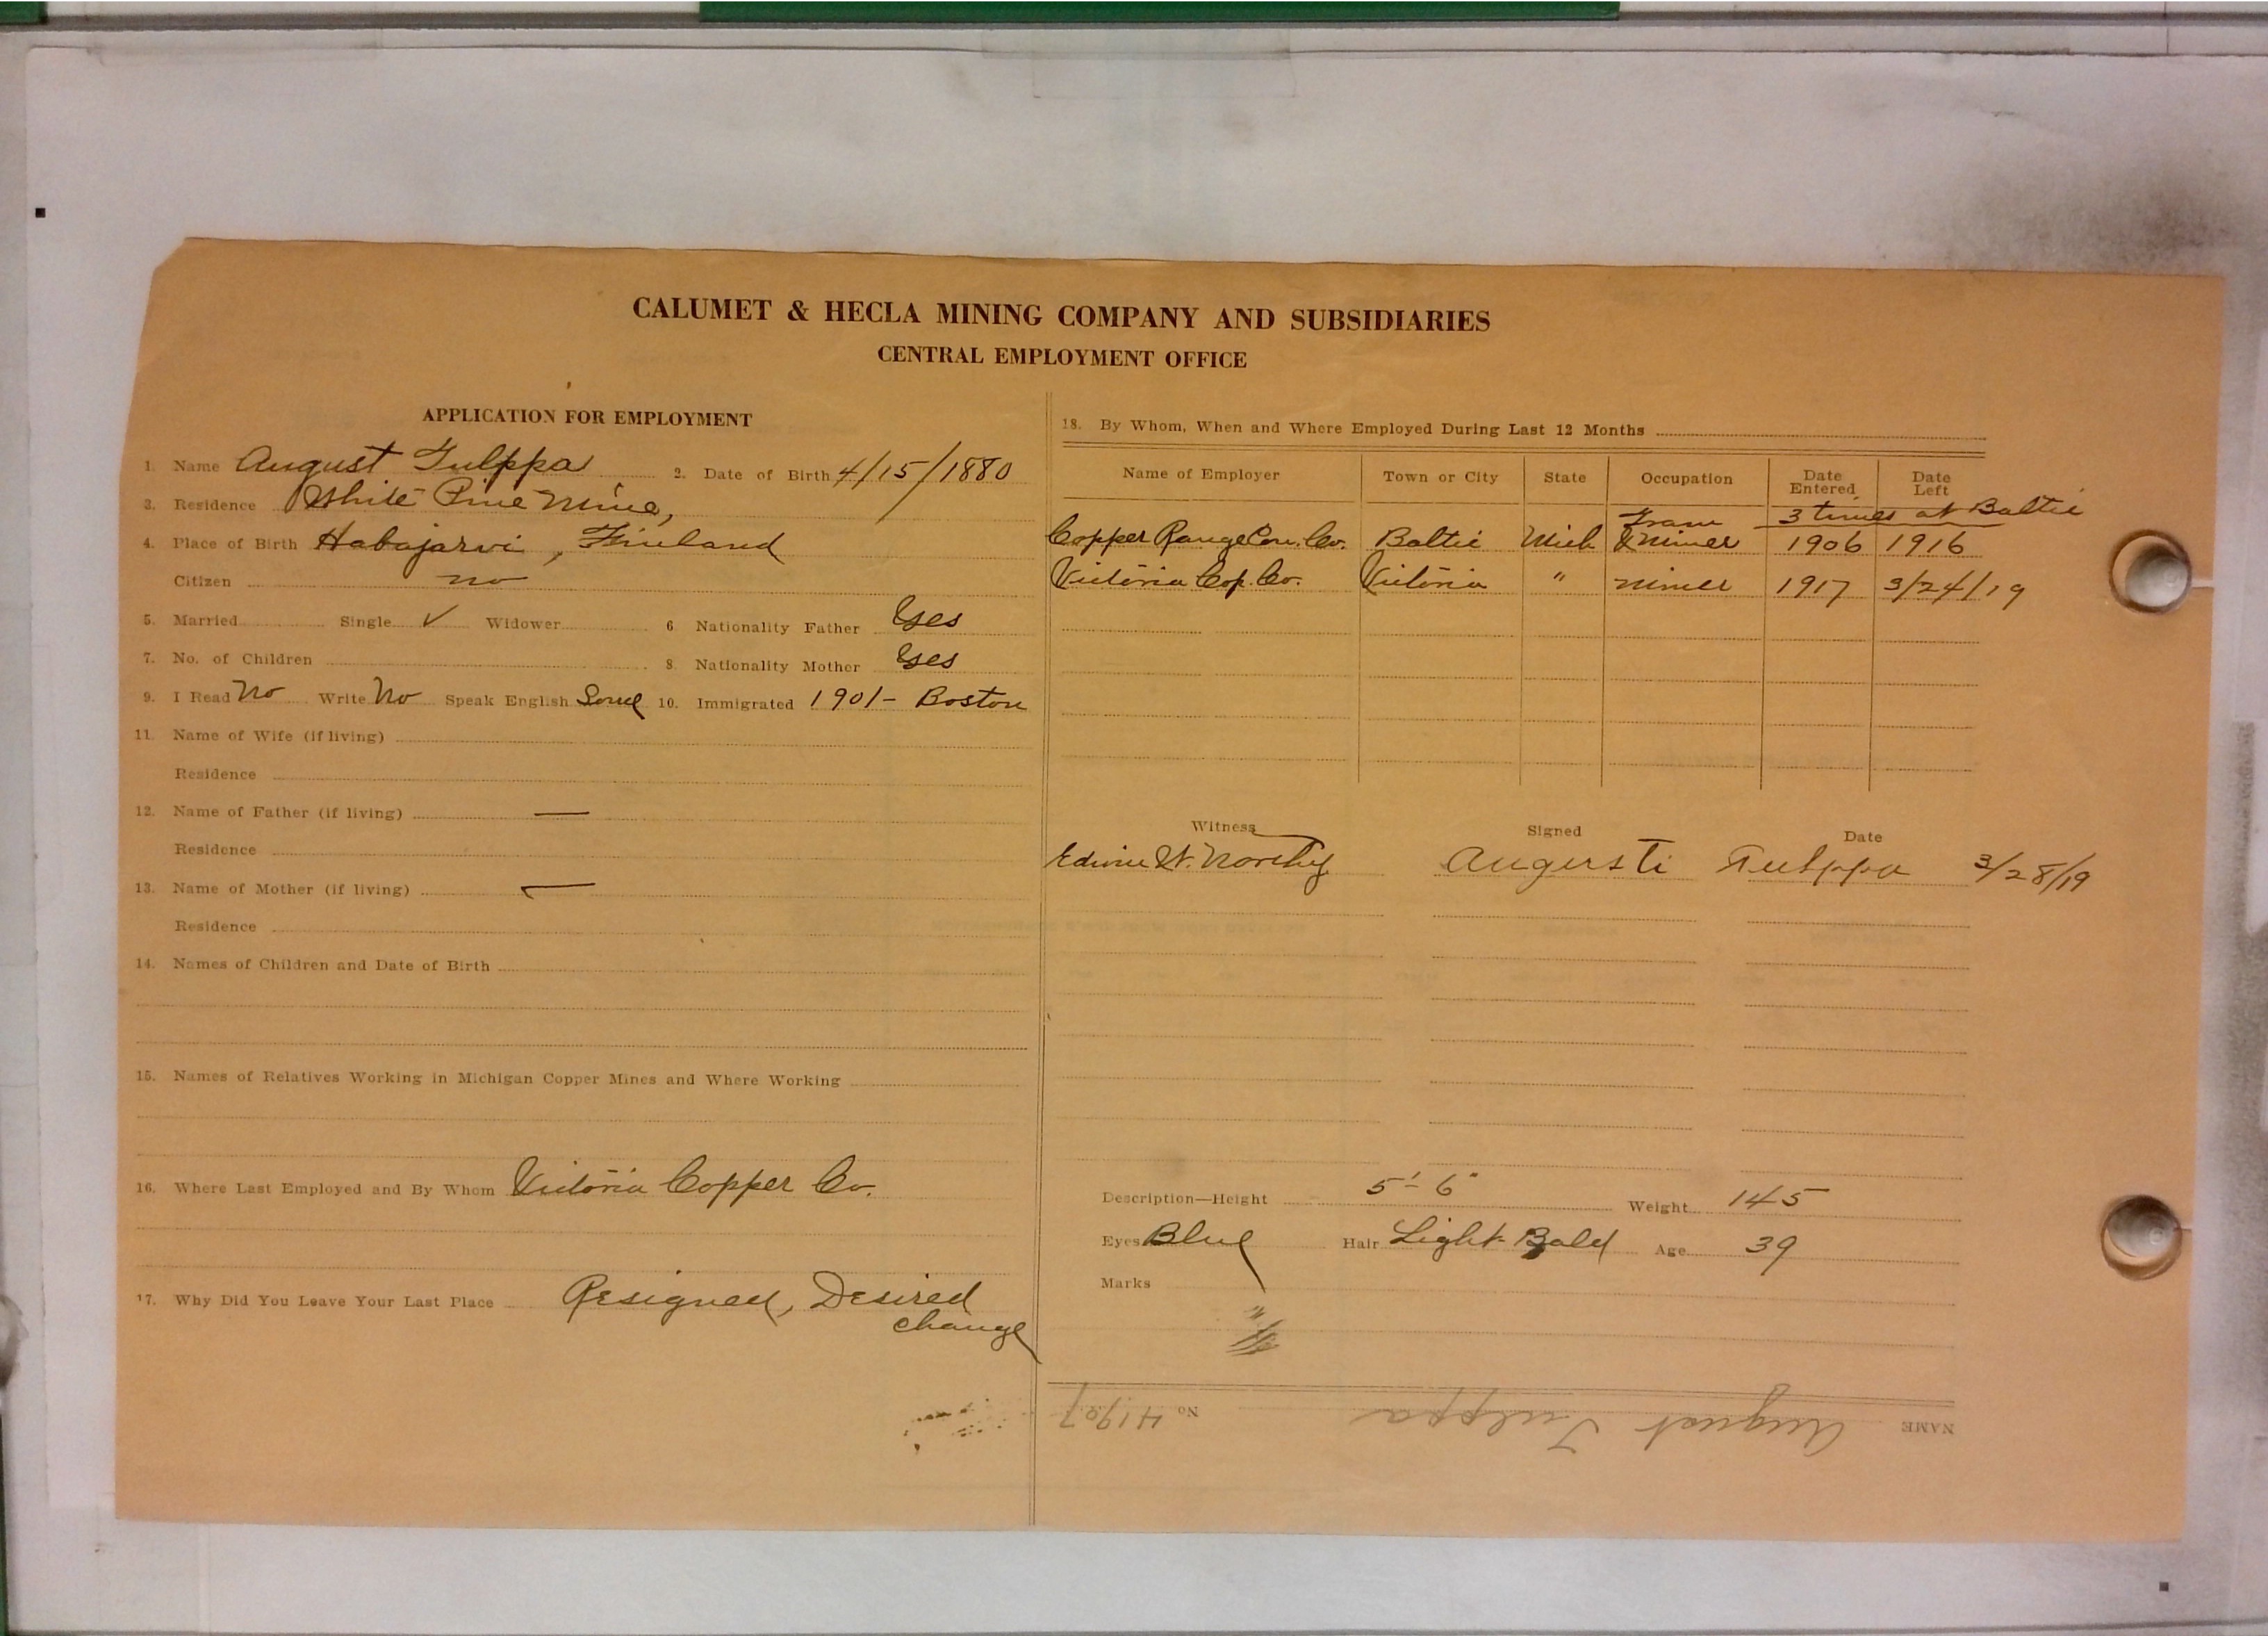 CALUMET & HECLA MINING COMPANY AND SUBSIDIARIES
CENTRAL EMPLOYMENT OFFICE
APPLICATION FOR EMPLOYMENT
1. Name August Tulppa 2. Date of Birth 4/15/1880
3. Residence White Pine Mine,
4. Place of Birth Habajarvi, Finland
Citizen no
5. Married Single ✓ Widower 6 Nationality Father Yes
7. No. of Children 8. Nationality Mother Yes
9. I Read No Write No Speak English Some 10. Immigrated 1901 - Boston
11. Name of Wife (if living)
Residence
12. Name of Father (if living) —
Residence
13. Name of Mother (if living) —
Residence
14. Names of Children and Date of Birth
15. Names of Relatives Working in Michigan Copper Mines and Where Working
16. Where Last Employed and By Whom Victoria Copper Co.
17. Why Did You Leave Your Last Place Resigned, Desired
change
18. By Whom, When and Where Employed During Last 12 Months
Name of Employer Town or City State Occupation Date Entered Date Left
Tram 3 times at Baltic
Copper Range Con. Co. Baltic Mich & Miner 1906 1916
Victoria Cop. Co. Victoria " Miner 1917 3/24/19
Witness Signed Date
Edwin W. Augusti Tulppa 3/28/19
Description—Height 5'-6" Weight 145
Eyes Blue Hair Light Bald Age 39
Marks
NAME August Tulppa No 41907